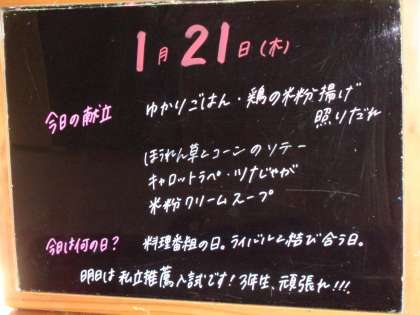 1月21日(木)
今日の献立 ゆかりごはん・鶏の米粉揚げ
照りだれ
ほうれん草とコーンのソテー
キャロットラペ・ツナじゃが
米粉クリームスープ
今日は何の日? 料理番組の日。ライバルと結び合う日。
明日は私立推薦入試です!3年生、頑張れ!!!